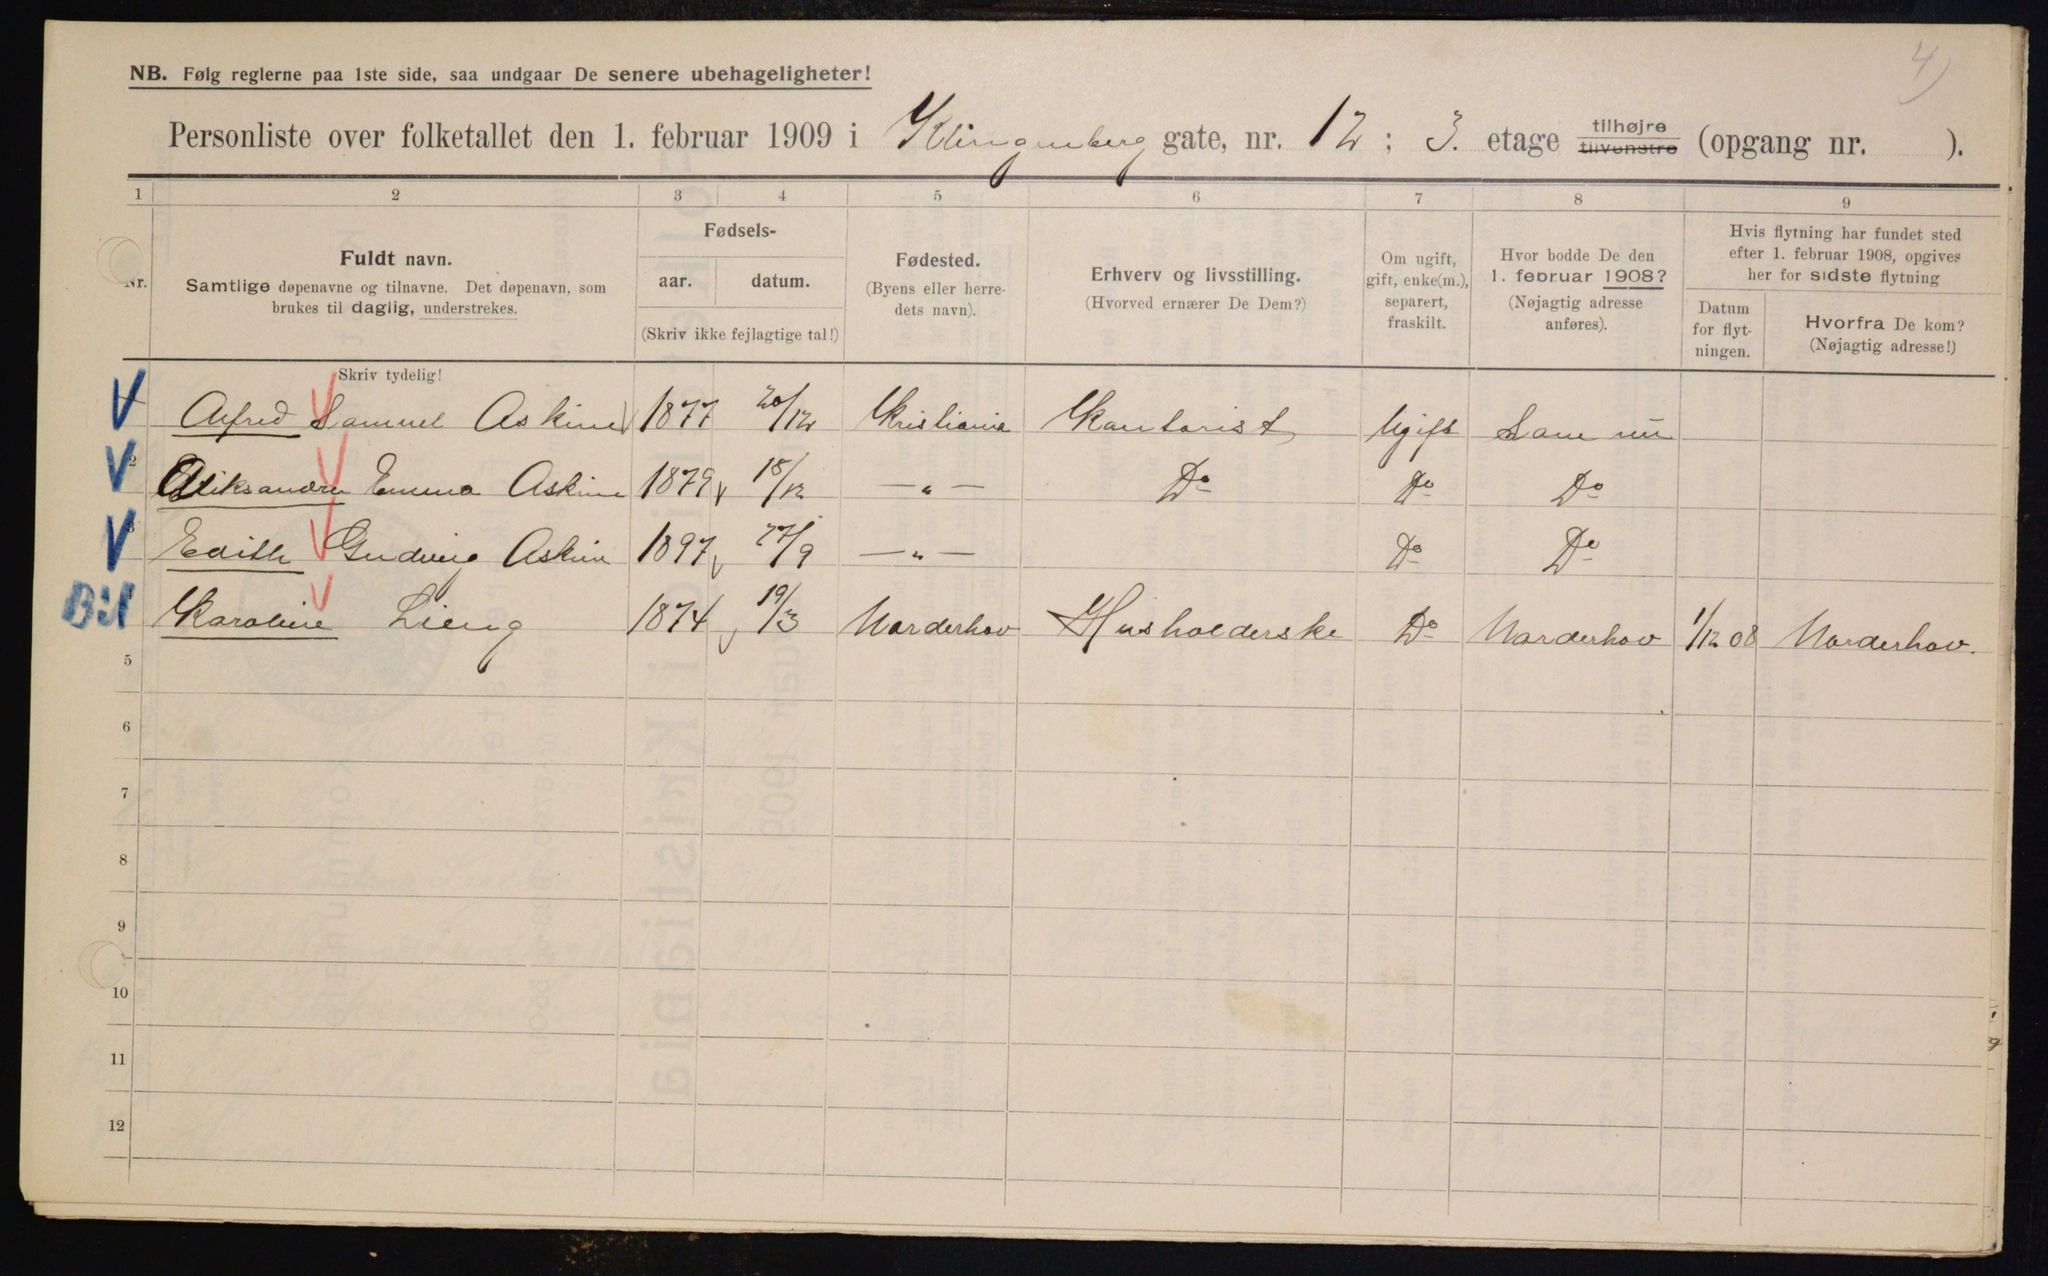 4)
NB. Følg reglerne paa 1ste side, saa undgaar De senere ubehageligheter!
Personliste over folketallet den 1. februar 1909 i Klingenberg gate, nr. 12; 3. etage tilhøjre tilvenstre (opgang nr. ).
1 2 3 4 5 6 7 8 9
Nr.
Fuldt navn.
Samtlige døpenavne og tilnavne. Det døpenavn, som
brukes til daglig, understrekes.
Skriv tydelig!
Fødsels-
aar. datum.
(Skriv ikke fejlagtige tal!)
Fødested.
(Byens eller herre-
dets navn).
Erhverv og livsstilling.
(Hvorved ernærer De Dem?)
Om ugift,
gift, enke(m.),
separert,
fraskilt.
Hvor bodde De den
1. februar 1908?
(Nøjagtig adresse
anføres).
Hvis flytning har fundet sted
efter 1. februar 1908, opgives
her for sidste flytning
Datum
for flyt-
ningen.
Hvorfra De kom?
(Nøjagtig adresse!)
Alfred Samuel Askim 1877 20/12 Kristiania Kontorist Ugift Som nu
2 Emma Askim 1879 18/12 — " — Do Do Do
3 Edith Askim 1897 27/9 — " — Do Do
Bil Karoline Lieng 1874 19/3 Norderhov Husholderske Do Norderhov 1/12 08 Norderhov.
5
6
7
8
9
10
11
12